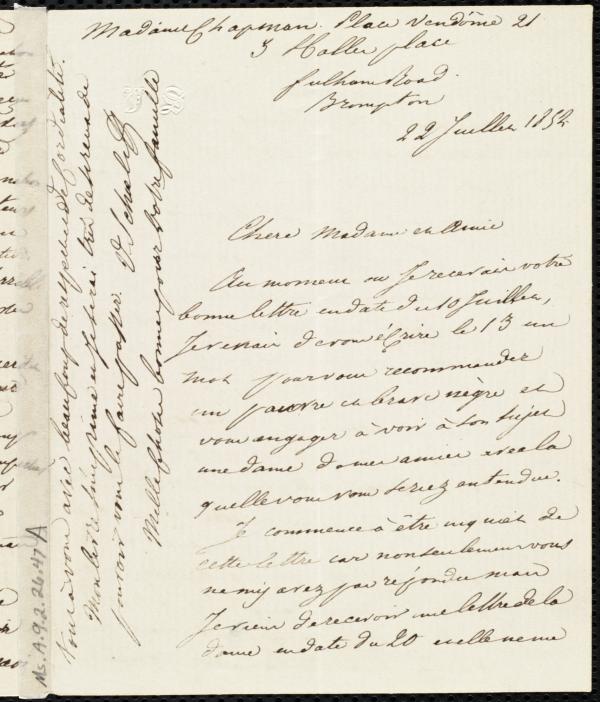 Madame Chapman. Place Vendôme 21
3 Haller place
fulham Road.
Brompton
22 Juillet 1852
Chere Madame et Amie
Au moment ou Je recevais votre
bonne lettre en date du 10 Juillet,
Je venais de vous écrire le 13 un
mot pour vous recommander
un pauvre et brave nègre et
vous engager à voir à son sujet
une dame de mes amies avec la
quelle vous vous seriez entendue.
Je commence à être inquiet de
cette lettre car non seulement vous
ne m'y avez pas répondu mais
Je viens de recevoir une lettre de la
dame en date du 20 et elle ne me
Tout à vous avec beaucoup de respect et de Cordialité.
Mon livre s'imprime et Je serai très
pouvoir vous le faire passer. V. Schœlcher
Mille choses bonnes pour votre famille
Ms. A.9.2.26.47A